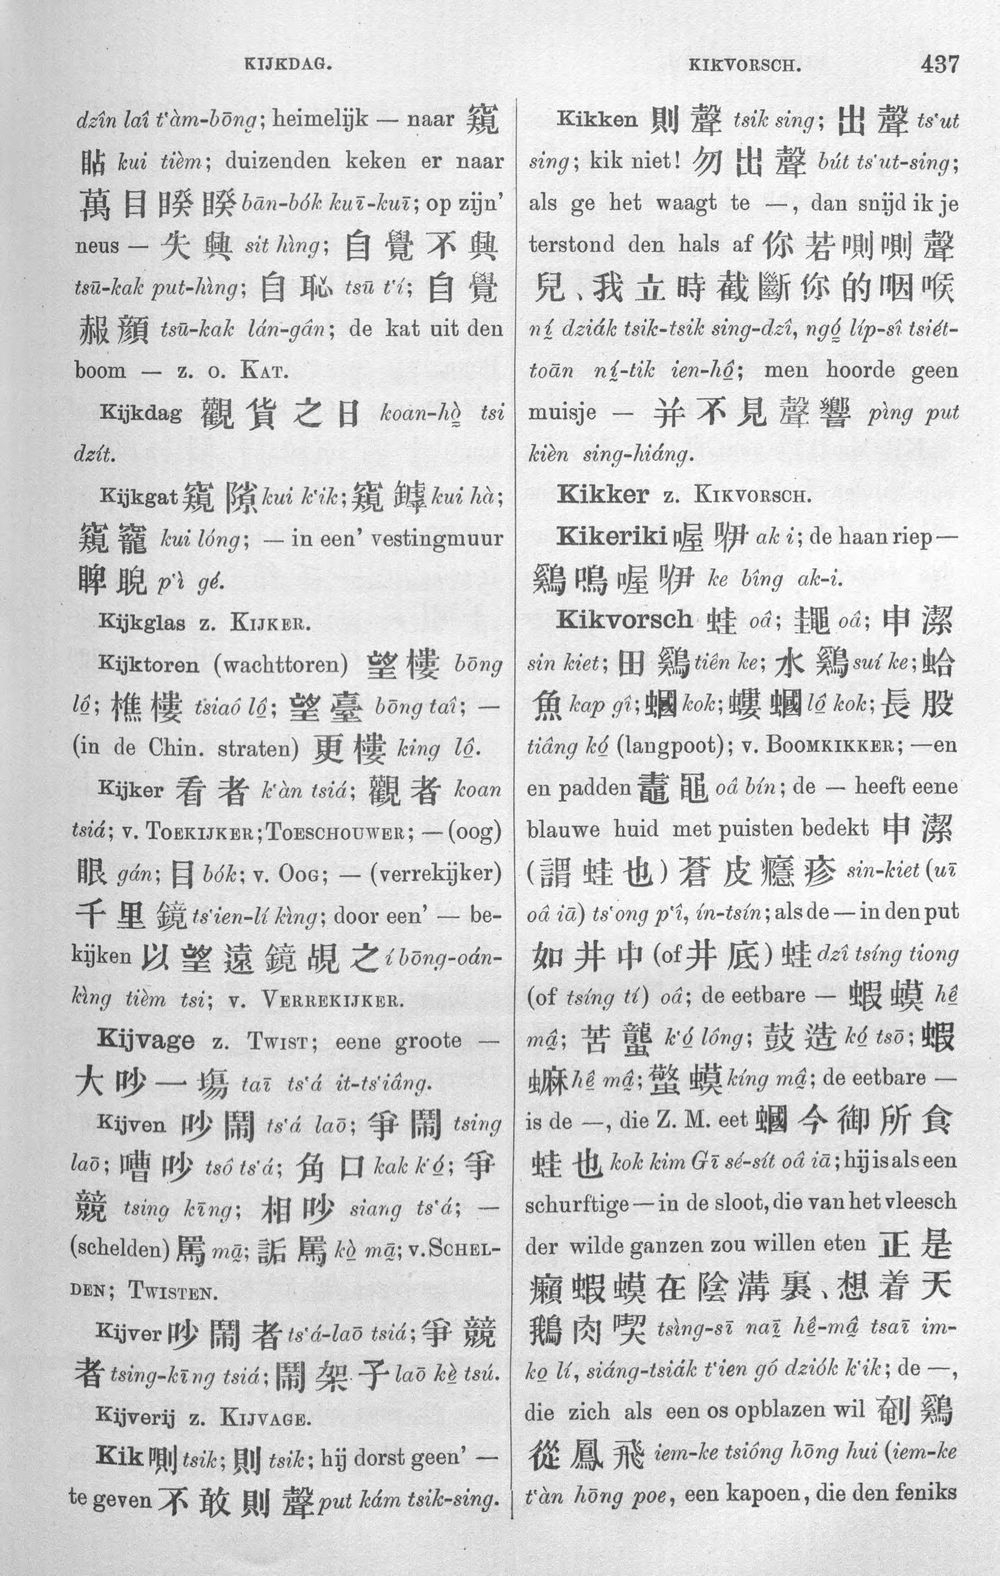 KIJKDAG.
KIKVORSCH.
437
dzîn laî t‘àm-bōng; heimelijk — naar 窺
貼 kui tièm; duizenden keken er naar
萬目睽睽 bān-bók kuī-kuī; op zijn’
neus — 失興 sit hìng; 自覺不興
tsū-kak put-hìng; 自恥 tsū t‘í; 自覺
赧顏 tsū-kak lán-gân; de kat uit den
boom — z. o. KAT.
Kijkdag 觀貨之日 koan-hò̤ tsi
dzít.
Kijkgat 窺隙 kui k‘ik; 窺罅 kui hà;
窺窿 kui lóng; — in een’ vestingmuur
睥睨 p‘ì gé.
Kijkglas z. KIJKER.
Kijktoren (wachttoren) 望樓 bōng
lô̤; 樵樓 tsiaô lô̤; 望臺 bōng taî; —
(in de Chin. straten) 更樓 king lô̤.
Kijker 看者 k‘àn tsiá; 觀者 koan
tsiá; v. TOEKIJKER; TOESCHOUWER; — (oog)
眼 gán; 目 bók; v. OOG; — (verrekijker)
千里鏡 ts‘ien-lí kìng; door een’ — be-
kijken 以望遠鏡覘之 í bōng-oán-
kìng tièm tsi; v. VERREKIJKER.
Kijvage z. TWIST; eene groote —
大吵一塲 taī ts‘á it-ts‘iâng.
Kijven 吵鬧 ts‘á laō; 爭鬧 tsing
laō; 嘈吵 tsô ts‘á; 角口 kak k‘ó̤; 爭
競 tsing kīng; 相吵 siang ts‘á; —
(schelden) 罵 mā̤; 詬罵 kò̤ mā̤; v. SCHEL-
DEN; TWISTEN.
Kijver 吵鬧者 ts‘á-laō tsiá; 爭競
者 tsing-kīng tsiá; 鬧架子 laō kè̤ tsú.
Kijverij z. KIJVAGE.
Kik 嘝 tsik; 則 tsik; hij dorst geen’ —
te geven 不敢則聲 put kám tsik-sing.
Kikken 則聲 tsik sing; 出聲 ts‘ut
sing; kik niet! 勿出聲 bút ts‘ut-sing;
als ge het waagt te —, dan snijd ik je
terstond den hals af 你若唎唎聲
兒、我立時截斷你的咽喉
ní̤ dziák tsik-tsik sing-dzî, ngó̤ líp-sî tsiét-
toān ní̤-tik ien-hô̤; men hoorde geen
muisje — 并不見聲響 pìng put
kièn sing-hiáng.
Kikker z. KIKVORSCH.
Kikeriki 喔咿 ak i; de haan riep —
鷄鳴喔咿 ke bîng ak-i.
Kikvorsch 蛙 oâ; 鼃 oâ; 申潔
sin kiet; 田鷄 tiên ke; 水鷄 suí ke; 蛤
魚 kap gî; 蟈 kok; 螻蟈 lô̤ kok; 長股
tiâng kó̤ (langpoot); v. BOOMKIKKER; — en
en padden 鼃黽 oâ bín; de — heeft eene
blauwe huid met puisten bedekt 申潔
(謂蛙也) 蒼皮癮疹 sin-kiet (uī
oâ iā) ts‘ong p‘î, ín-tsín; als de — in den put
如井中 (of 井底) 蛙 dzî tsíng tiong
(of tsíng tí) oâ; de eetbare — 蝦蟆 hê̤
mâ̤; 苦蠪 k‘ó̤ lông; 鼓造 kó̤ tsō; 蝦
䗫 hê̤ mâ̤; 螫蟆 kíng mâ̤; de eetbare —
is de —, die Z. M. eet 蟈今御所食
蛙也 kok kim Gī sé-sít oâ iā; hij is als een
schurftige — in de sloot, die van het vleesch
der wilde ganzen zou willen eten 正是
癩蝦蟆在陰溝裏、想着天
鵝肉喫 tsìng-sī naī̤ hê̤-mâ̤ tsaī im-
ko̤ lí, siáng-tsiák t‘ien gó dziók k‘ik; de —,
die zich als een os opblazen wil 剦鷄
從鳳飛 iem-ke tsióng hōng hui (iem-ke
t‘àn hōng poe, een kapoen, die den feniks